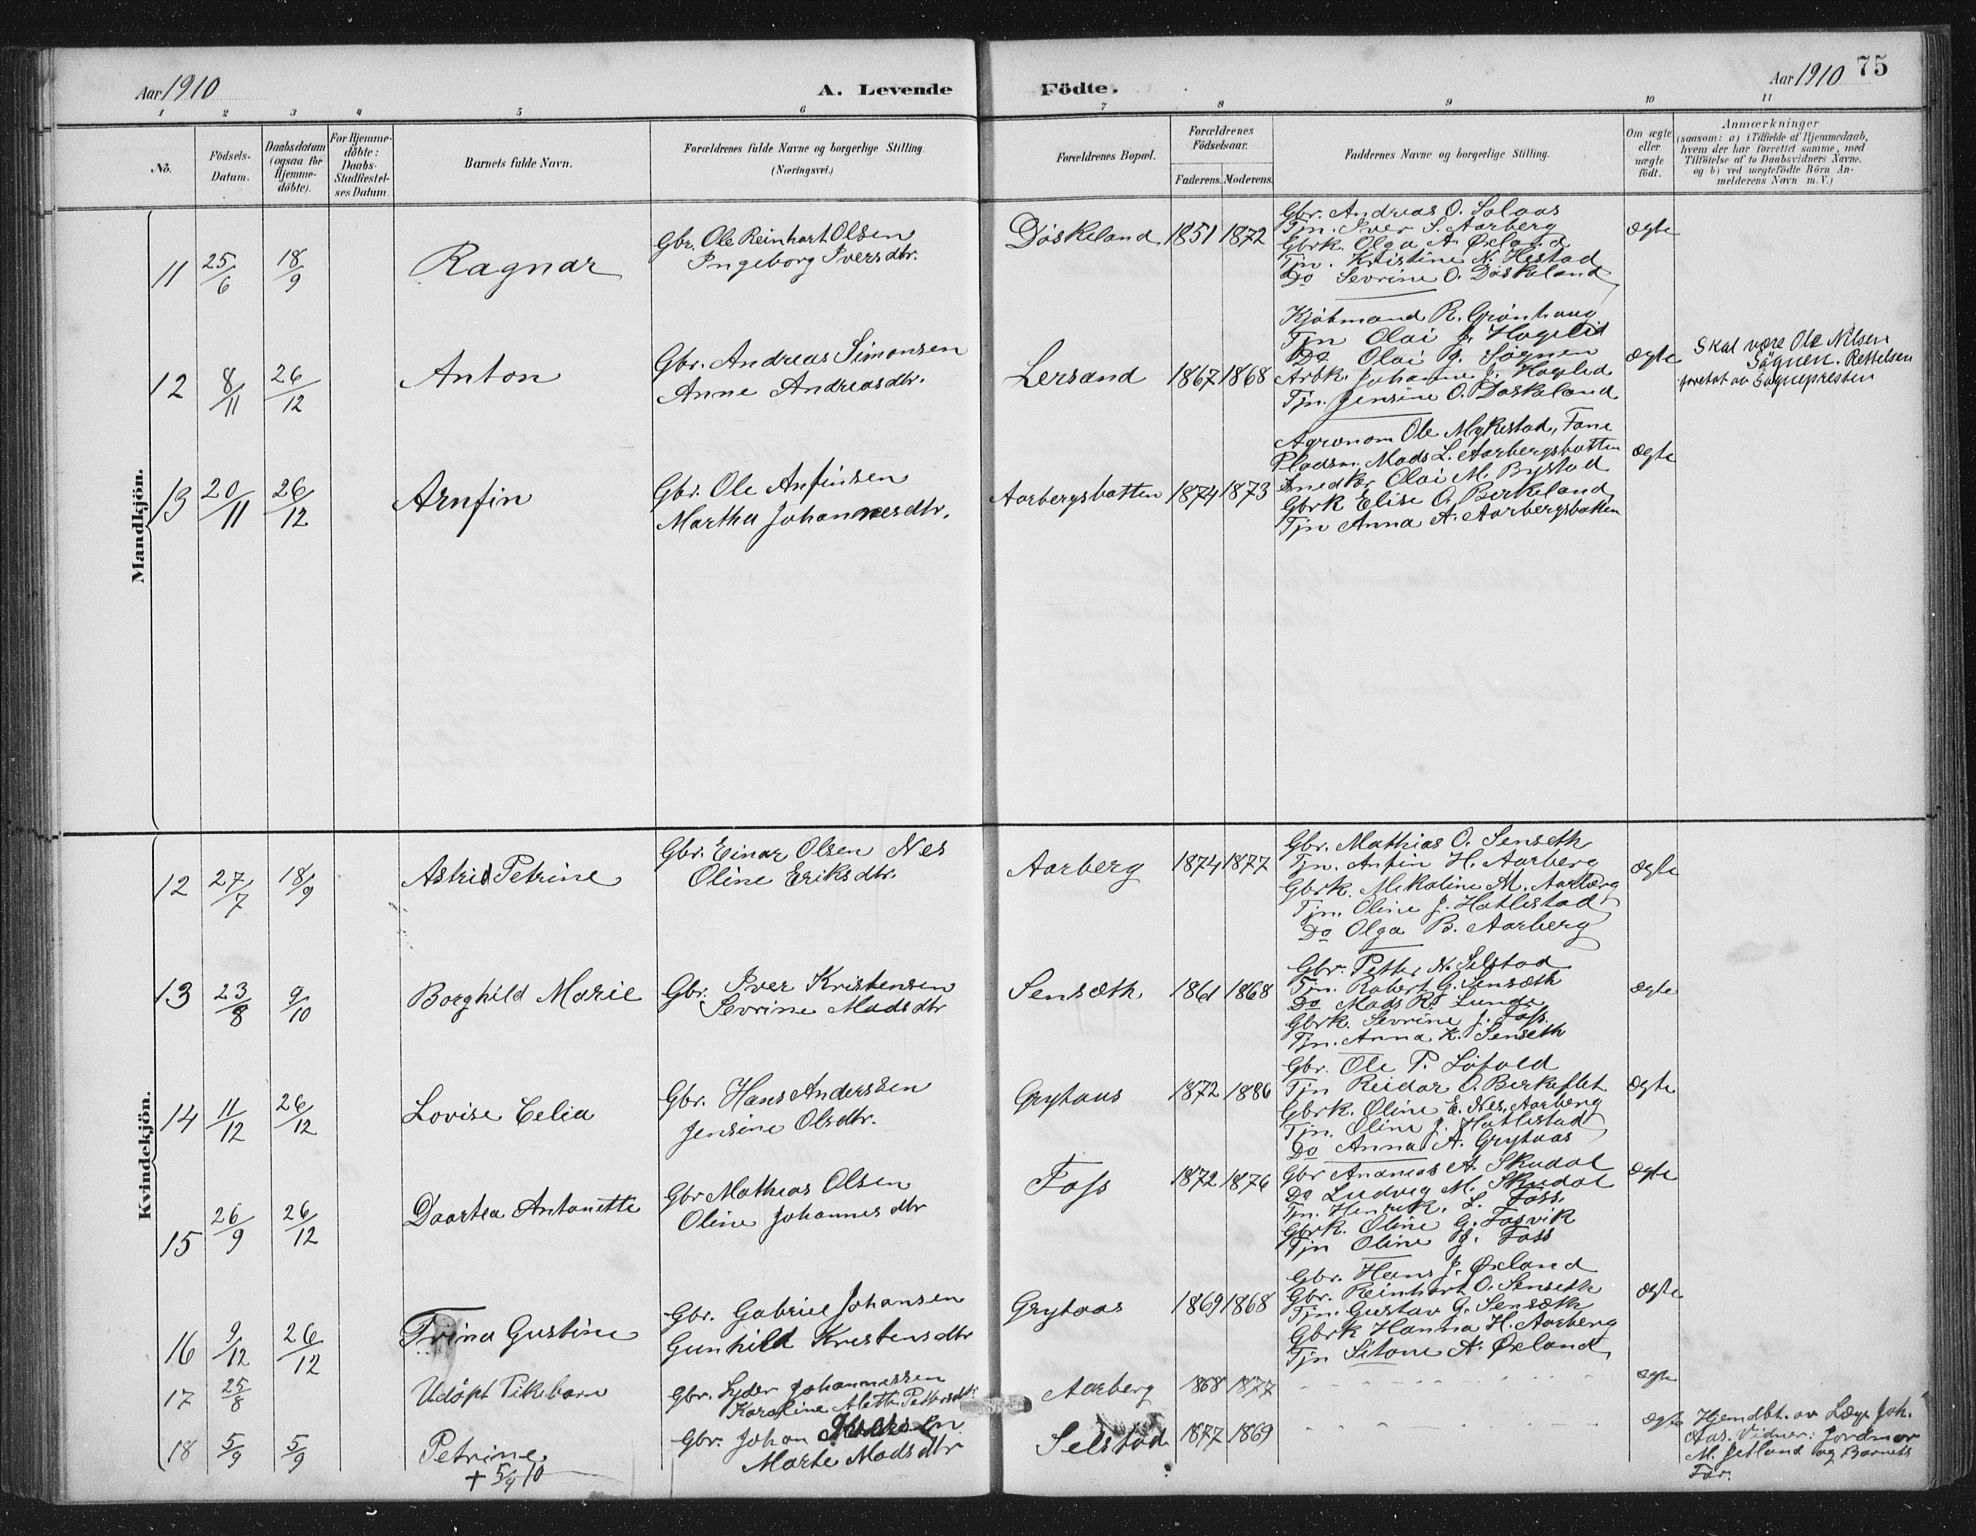 Aar 1910
A. Levende
Födte.
Aar 1910
75
1 2 3 4 5 6 7 8 9 10 11
No.
Födsels-
Datum.
Daabsdatum
(ogsaa for
Hjemme-
döbte).
For Hjemme-
döbte:
Daabs-
Stadfæstel-
ses Datum.
Barnets fulde Navn.
Forældrenes fulde Navne og borgerlige Stilling.
(Næringsvei.)
Forældrenes Bopæl.
Forældrenes
Födselsaar.
Faderens. Moderens.
Faddernes Navne og borgerlige Stilling.
Om ægte
eller
uægte
födt.
Anmærkninger
(saasom: a) i Tilfælde af Hjemmedaab,
hvem der har forrettet samme, med
Tilföielse af to Daabsvidners Navne.
og b) ved uægtefödte Börn An-
melderens Navn m. V.)
Mandkjön.
11 25/6 18/9 Ragnar
Gbr. Ole Reinhart Olsen
Ingeborg Iversdtr.
Döskeland 1851 1872
Gbr. Andreas O. Solaas
Tjn. Iver S. Aarberg
Gbrk. Olga A. Øxland
Tjn. Kristine N. Hestad
Do Sevrine O. Döskeland
ægte
12 8/11 26/12 Anton
Gbr. Andreas Simonsen
Anne Andreasdtr.
Lersand 1867 1868
Kjöbmand R. Grönhaug
Tjn Olai J. Hoglid
Do Olai J. Sögnen
Arbk. Johanne J. Hoglid
Tjn. Jensine O. Döskeland
ægte
Skal være Ole Nilsen
Sögnen. Rettelsen
foretat av Sognepresten
13 20/11 26/12 Arnfin
Gbr. Ole Anfinsen
Martha Johannesdtr.
Aarbergsbotten 1874 1873
Agronom Ole Mykestad, Fane
Pladsm. Mads L. Aarbergsbotten
Snedker Olai M. Bystad
Gbrk Elise O. Birkeland
Tjn Anna A. Aarbergsbotten
ægte
Kvindekjön.
12 27/7 18/9 Astrid Petrine
Gbr. Einar Olsen Nes
Oline Eriksdtr.
Aarberg 1874 1877
Gbr. Mathias O. Senseth
Tjn. Anfin H. Aarberg
Gbrk. Mikaline M. Aarberg
Tjn. Oline J. Hatlestad
Do Olga B. Aarberg
ægte
13 23/8 9/10 Borghild Marie
Gbr. Iver Kristensen
Sevrine Madsdtr
Sensæth 1861 1868
Gbr. Petter N. Selstad
Tjn. Robert G. Sensæth
Do Mads R. Lunde
Gbrk. Sevrine J. Foss.
Tjn. Anna K. Senseth
ægte
14 11/12 26/12 Lovise Celia
Gbr. Hans Anderssen
Jensine Olsdtr.
Grytaas 1872 1886
Gbr. Ole P. Löfold
Tjn Reidar O. Birkeflet
Gbrk. Oline E. Nes, Aarberg
Tjn. Oline J. Hatlestad
Do Anna A. Grytaas
ægte
15 26/9 26/12 Daartea Antonette
Gbr Mathias Olsen
Oline Johannesdtr
Foss 1872 1876
Gbr Andreas A. Skudal
Do Ludvig M. Skudal
Tjn. Henrik. L. Foss.
Gbrk. Oline G. Fosvik
Tjn Oline J. Foss
ægte
16 9/12 26/12 Trina Gustine
Gbr. Gabriel Johansen
Gunhild Kristensdtr
Grytaas 1869 1868
Gbr. Hans J. Øxland
Gbr. Reinhart O. Senseth
Tjn. Gustav G. Sensæth
Gbrk Hanna H. Aarberg
Tjn Sitone A. Øxland
ægte
17 25/8 Udöpt Pikebarn
Gbr. Lyder Johannessen
Karoline Aletta Pettersdtr.
Aarberg 1868 1877
ægte
18 5/9 5/9 Petrine
+ 5/9 10
Gbr. Johan
Marte Madsdtr
Selstad 1877 1869
ægte
Hjemdbt. av Læge Joh.
Aas. Vidner: Jordmor
M. Jetland og Barnets
Far.